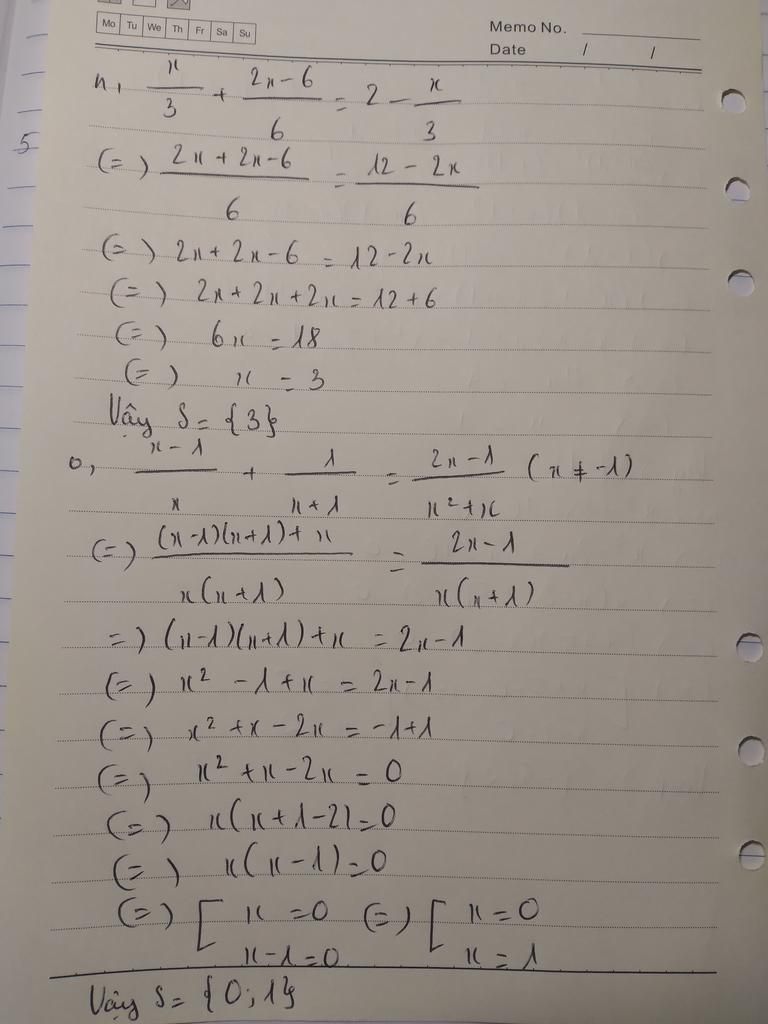 Mo Tu We Th Fr Sa Su
Memo No.
Date / /
5
n, x/3 + (2x-6)/6 = 2 - x/3
(=) (2x + 2x-6)/6 = (12 - 2x)/6
(=) 2x + 2x - 6 = 12 - 2x
(=) 2x + 2x + 2x = 12 + 6
(=) 6x = 18
(=) x = 3
Vậy S = {3}
o, (x-1)/x + 1/(x+1) = (2x-1)/(x²+x) (x ≠ -1)
(=) ((x-1)(x+1)+x)/(x(x+1)) = (2x-1)/(x(x+1))
=) (x-1)(x+1)+x = 2x-1
(=) x² - 1 + x = 2x-1
(=) x² + x - 2x = -1+1
(=) x² + x - 2x = 0
(=) x(x+1-2)=0
(=) x(x-1)=0
(=) [ x = 0 (=) [ x = 0
x-1=0 x = 1
Vậy S = {0;1}